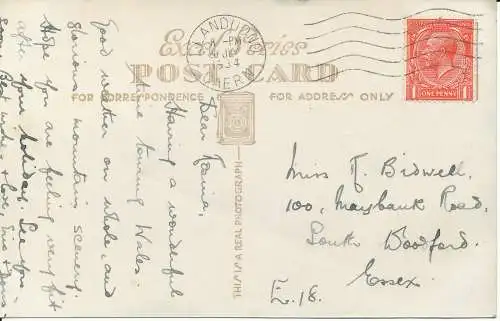 LLANDUDNO
1934
Excel Series
POST CARD
FOR CORRESPONDENCE
FOR ADDRESS ONLY
ONE PENNY
THIS IS A REAL PHOTOGRAPH
Having a wonderful
time touring Wales.
Good weather on whole, and
glorious mountain scenery.
Hope you are feeling very fit
after your holiday. See you
soon. Best wishes & love,
Miss R. Bidwell,
100, Maybank Road,
South Woodford,
Essex
E.18.